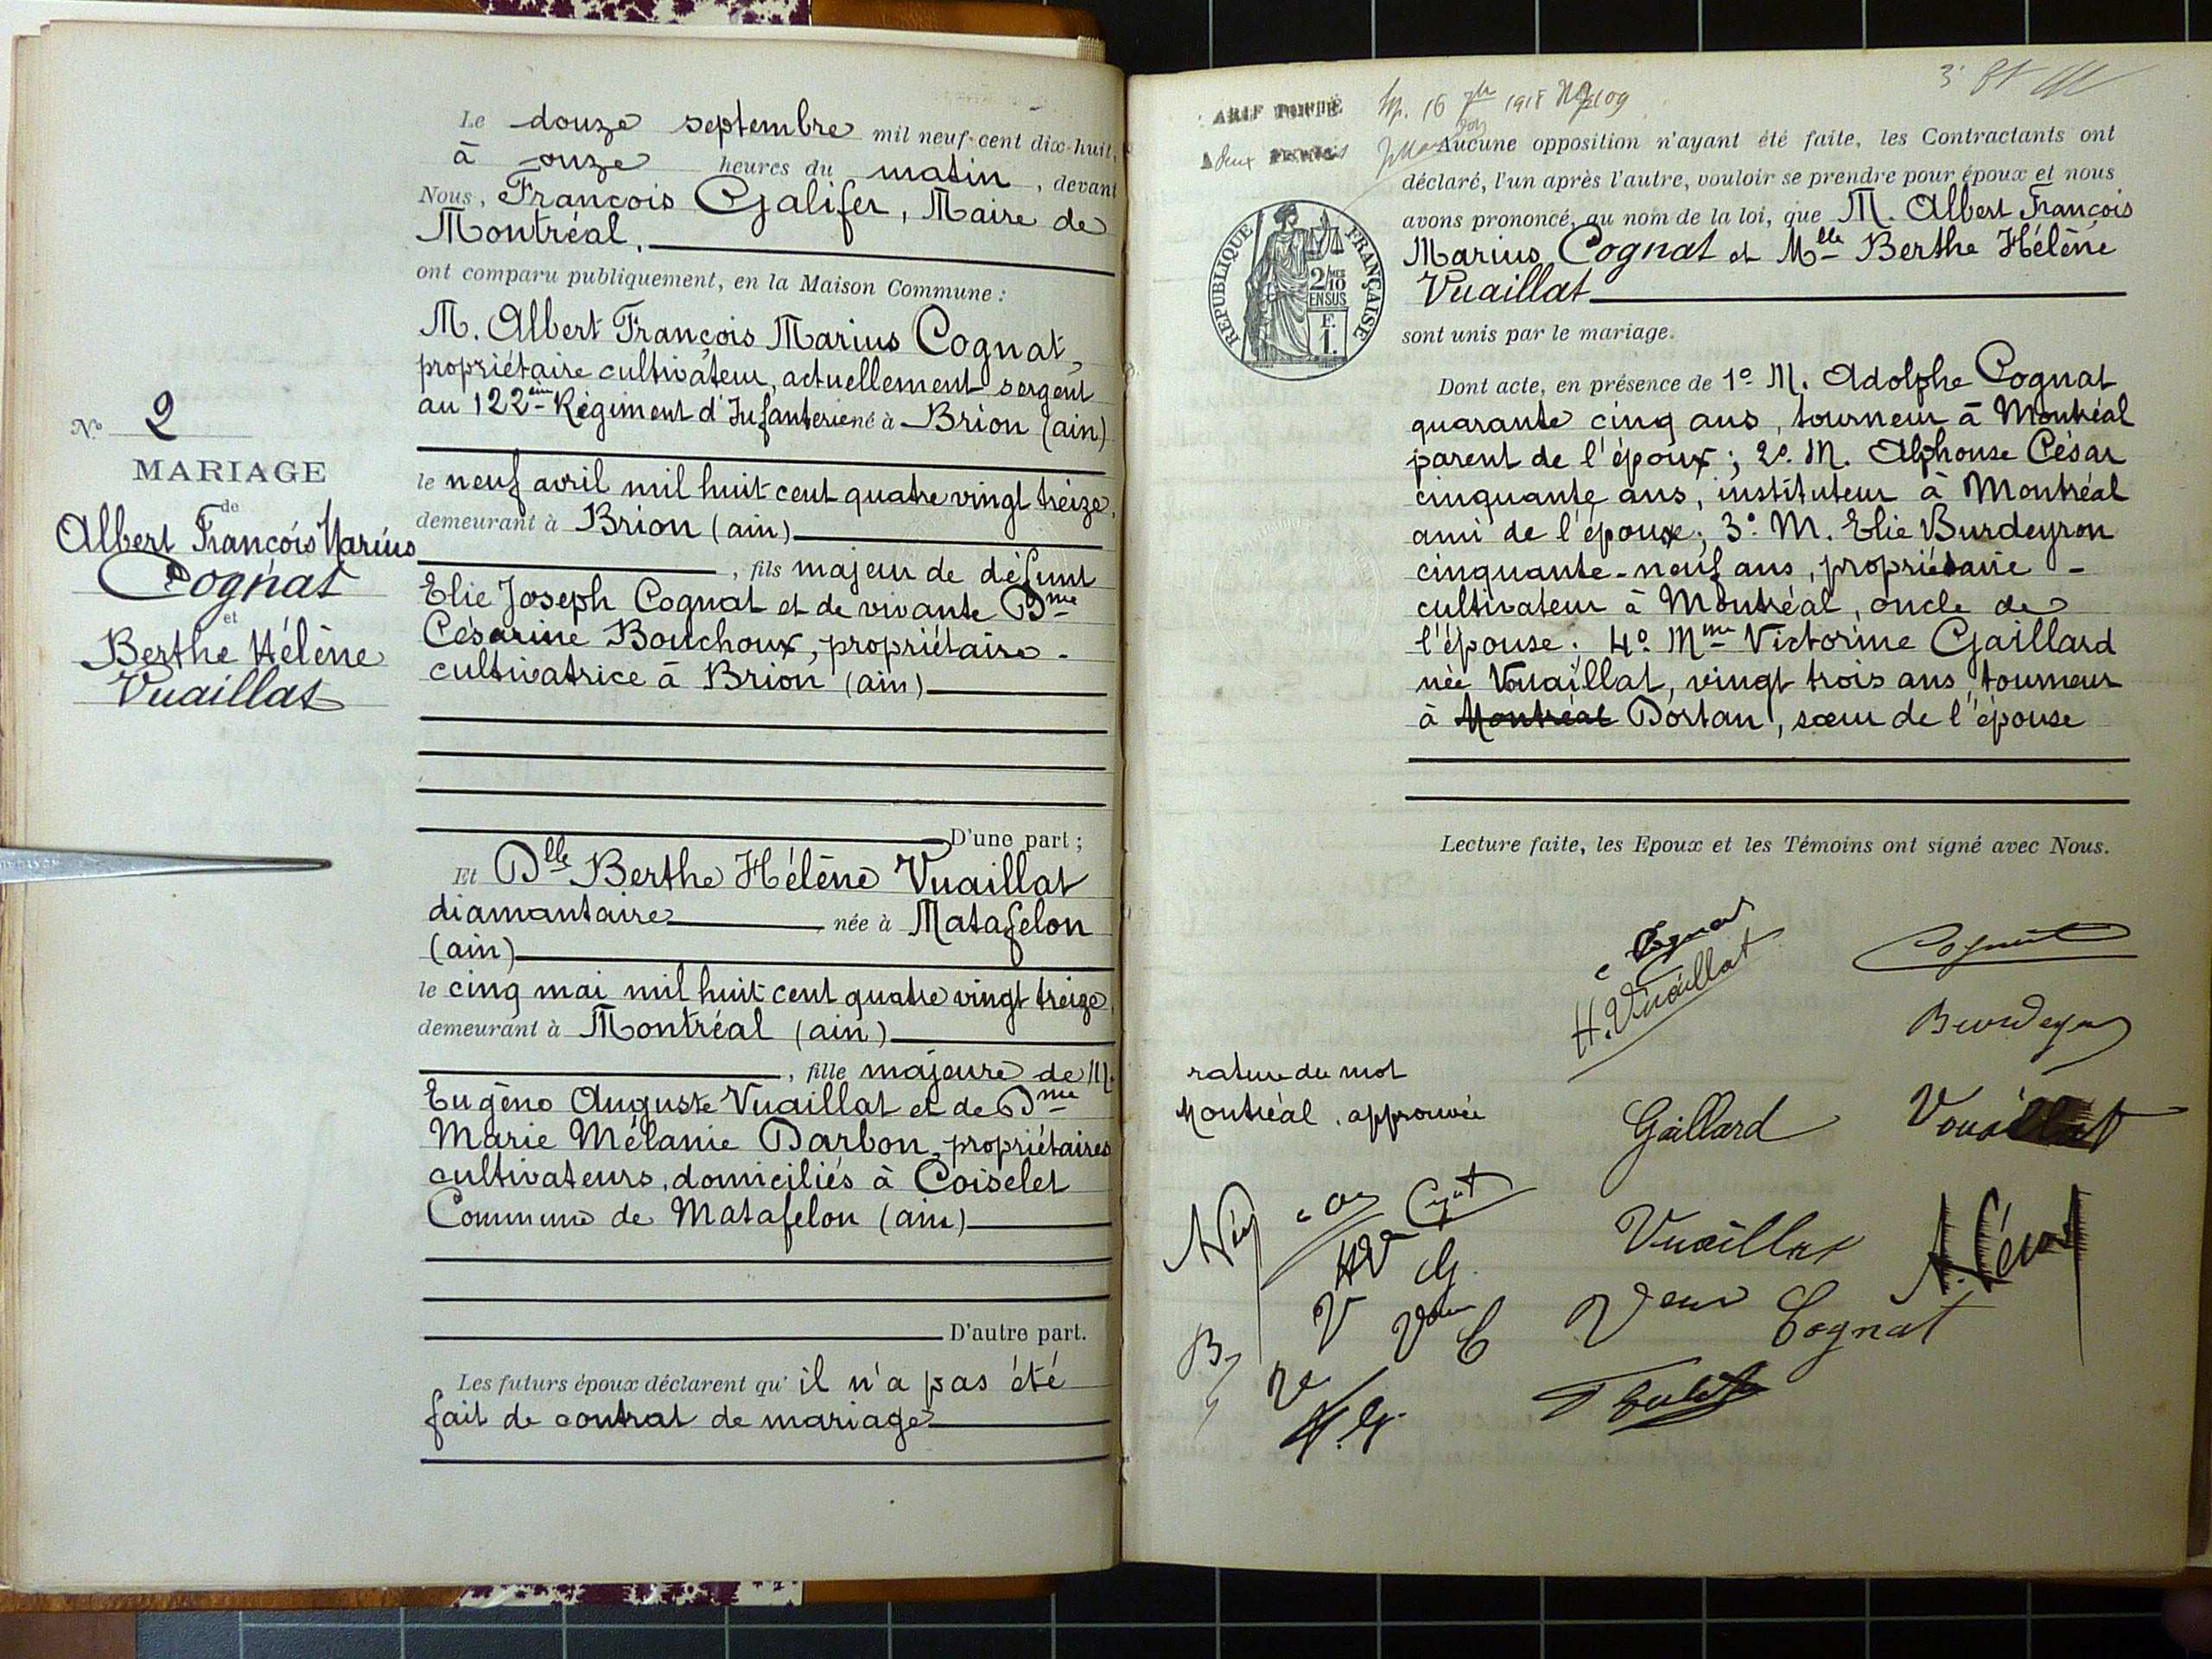 N° 2
MARIAGE
de
Albert François Marius
Cognat
et
Berthe Hélène
Vuaillat
Le douze septembre mil neuf-cent dix-huit,
à onze heures du matin, devant
Nous, François Galifer, Maire de
Montréal.
ont comparu publiquement, en la Maison Commune :
M. Albert François Marius Cognat,
propriétaire cultivateur, actuellement sergent
au 122ème Régiment d'Infanterie né à Brion (ain)
le neuf avril mil huit cent quatre vingt treize,
demeurant à Brion (ain)
, fils majeur de défunt
Elie Joseph Cognat et de vivante Dme
Césarine Bouchoux, propriétaire-
cultivatrice à Brion (ain)
D'une part ;
Et Dlle Berthe Hélène Vuaillat
diamantaire née à Matafelon
(ain)
le cinq mai mil huit cent quatre vingt treize,
demeurant à Montréal (ain)
, fille majeure de M.
Eugène Auguste Vuaillat et de Dme
Marie Mélanie Darbon, propriétaires
cultivateurs, domiciliés à Coiselet
Commune de Matafelon (ain)
D'autre part.
Les futurs époux déclarent qu'il n'a pas été
fait de contrat de mariage
1918
Aucune opposition n'ayant été faite, les Contractants ont
déclaré, l'un après l'autre, vouloir se prendre pour époux et nous
avons prononcé, au nom de la loi, que M. Albert François
Marius Cognat et Mlle Berthe Hélène
Vuaillat
sont unis par le mariage.
RÉPUBLIQUE FRANÇAISE
2/10
EN SUS
F.
1.
Dont acte, en présence de 1° M. Adolphe Cognat
quarante cinq ans, tourneur à Montréal
parent de l'époux ; 2° M. Alphonse César
cinquante ans, instituteur à Montréal
ami de l'époux ; 3° M. Elie Burdeyron
cinquante-neuf ans, propriétaire -
cultivateur à Montréal, oncle de
l'épouse ; 4° Mme Victorine Gaillard
née Vouaillat, vingt trois ans, tourneur
à Montréal Dortan, sœur de l'épouse
Lecture faite, les Epoux et les Témoins ont signé avec Nous.
Cognat
H. Vuaillat
Cognat
Burdeyron
rature du mot
Montréal approuvée
Gaillard
Vouaillat
Vuaillat
A. César
Veuve Cognat